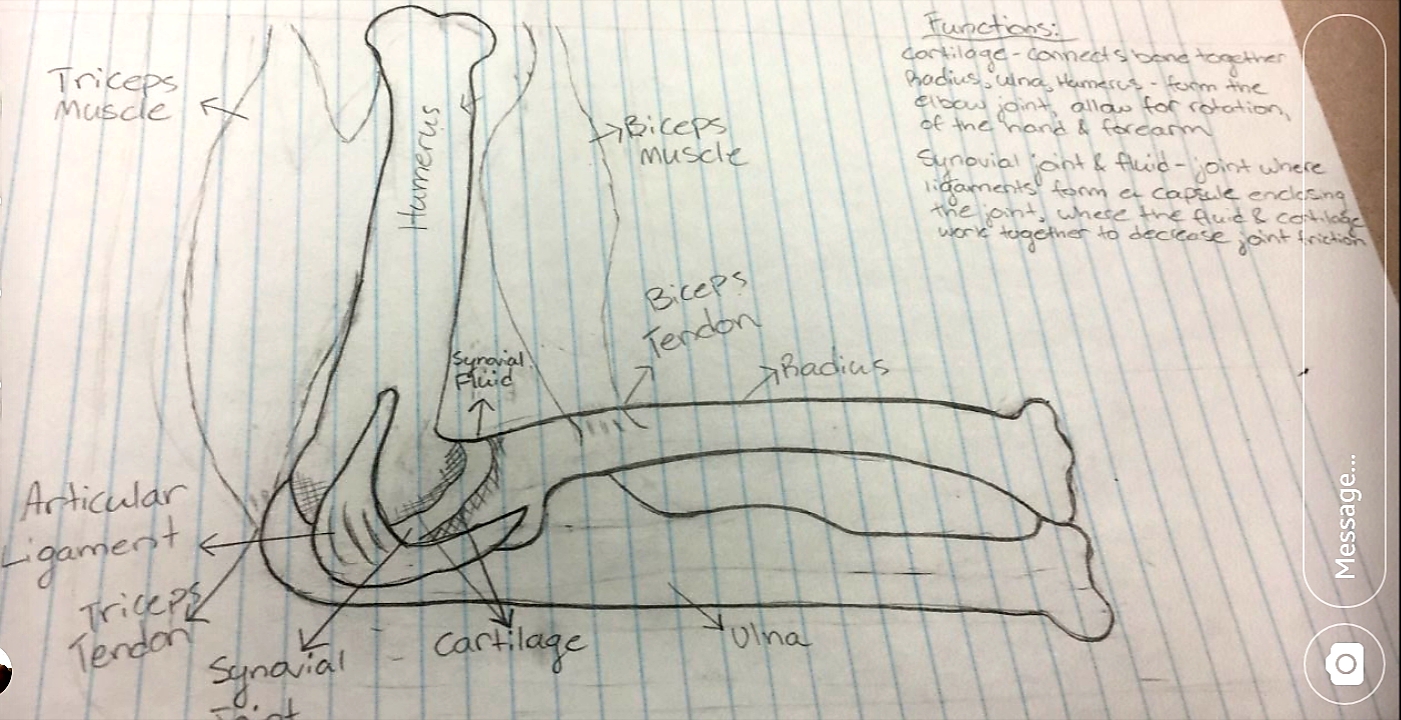 Functions:
Cartilage - connects bone together
Radius, Ulna, Humerus - form the
elbow joint, allow for rotation,
of the hand & forearm
Synovial joint & fluid - joint where
ligaments form a capsule enclosing
the joint, where the fluid & cartilage
work together to decrease joint friction
Triceps
Muscle
Humerus
Biceps
muscle
Biceps
Tendon
Synovial
Fluid
Radius
Articular
Ligament
Triceps
Tendon
Synovial
Joint
Cartilage
Ulna
Message...